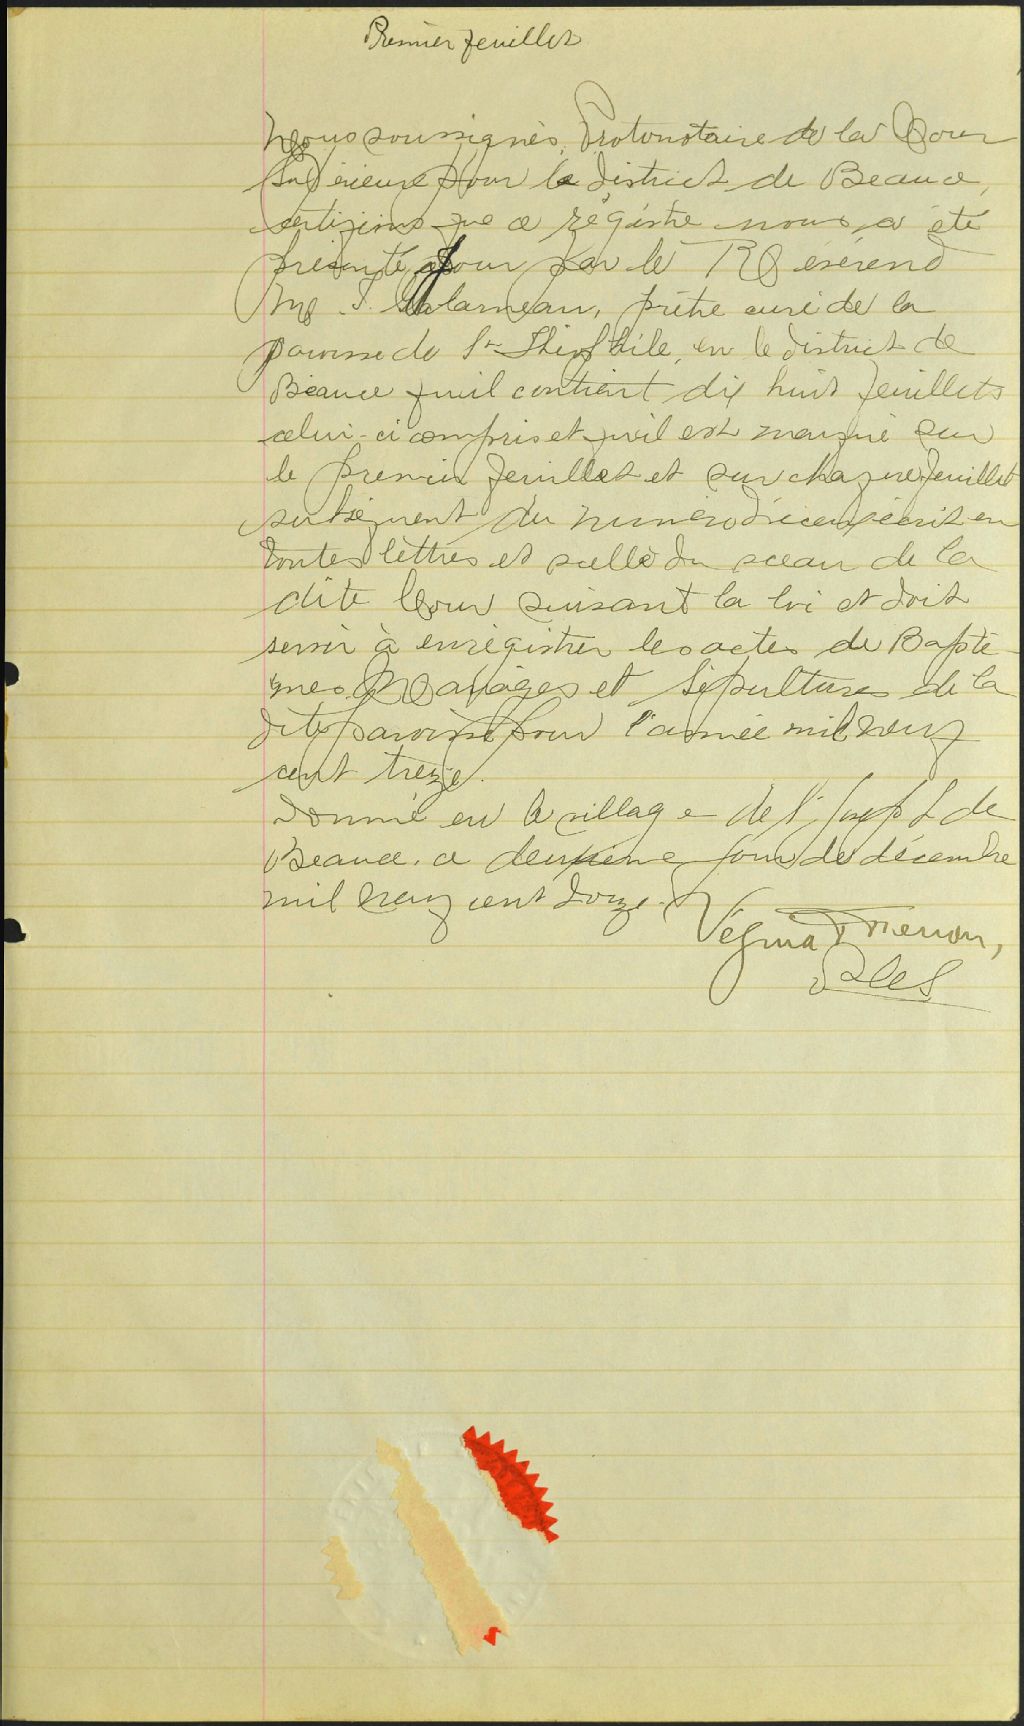 Premier feuillet
Nous soussignés, Protonotaire de la Cour
Supérieure pour le district de Beauce,
certifions que ce régistre nous a été
présenté pour par le Révérend
Mr J. Galarneau, prêtre curé de la
paroisse de St Théophile, en le district de
Beauce qu'il contient dix huit feuillets
celui-ci compris et qu'il est marqué sur
le premier feuillet et sur chaque feuillet
subséquent du numéro d'iceux écrit en
toutes lettres et scellé du sceau de la
dite Cour suivant la loi et doit
servir à enrégistrer les actes de Baptê-
mes Mariages et Sépultures de la
dite paroisse pour l'année mil neuf
cent treize.
Donné en le village de St Joseph de
Beauce, ce deuxième jour de décembre
mil neuf cent douze.
Vézina